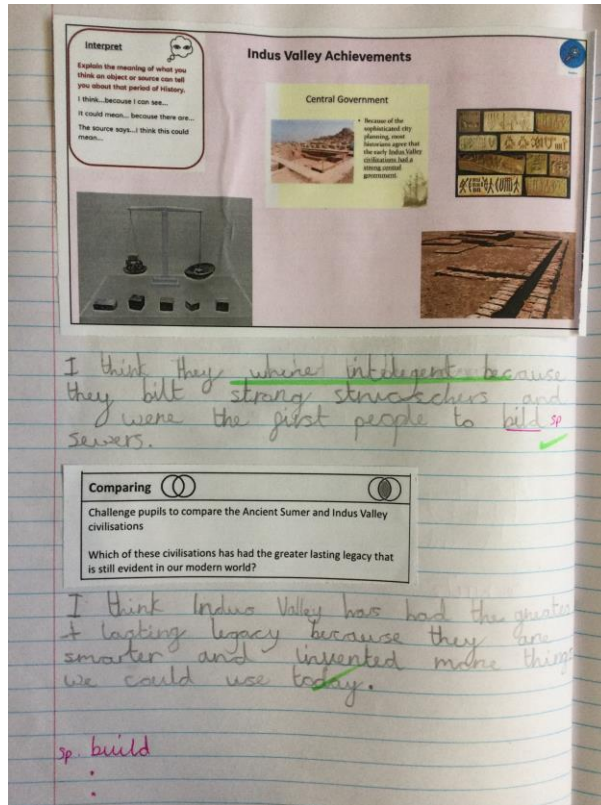 Interpret
Explain the meaning of what you
think an object or source can tell
you about that period of History.
I think...because I can see...
It could mean... because there are...
The source says...I think this could
mean...
Indus Valley Achievements
Central Government
• Because of the
sophisticated city
planning, most
historians agree that
the early Indus Valley
civilisations had a
strong central
government.
I think they where intelegent because
they bilt strong strucschers and
were the first people to bild sp
sewers.
Comparing
Challenge pupils to compare the Ancient Sumer and Indus Valley
civilisations
Which of these civilisations has had the greater lasting legacy that
is still evident in our modern world?
I think Indus Valley has had the greates
t lasting legacy because they are
smarter and invented more things
we could use today.
sp. build